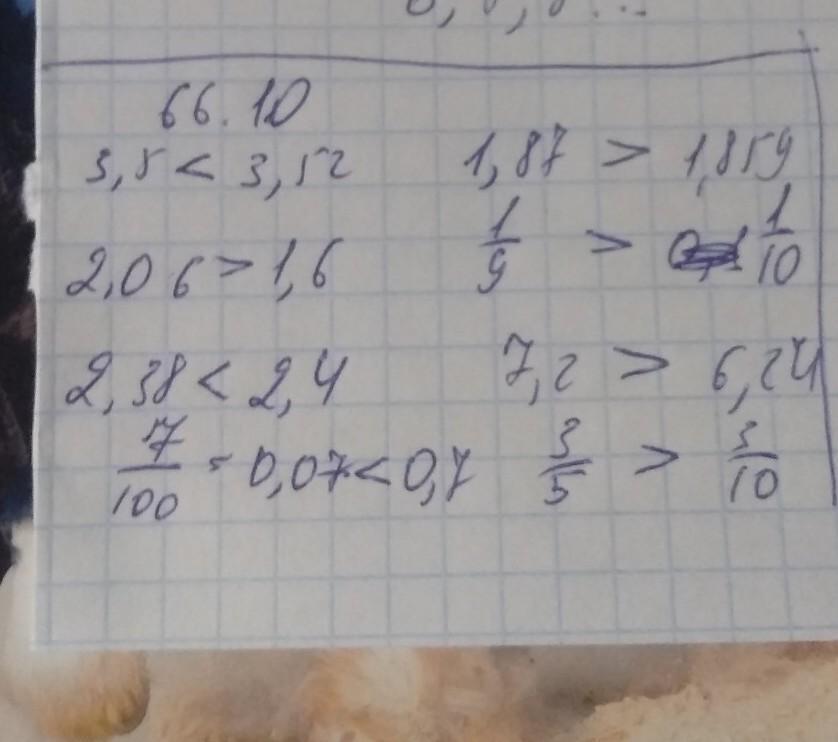 66.10
3,5 < 3,52 1,87 > 1,859
2,06 > 1,6 1/9 > 1/10
2,38 < 2,4 7,2 > 6,24
7/100 = 0,07 < 0,7 3/5 > 3/10